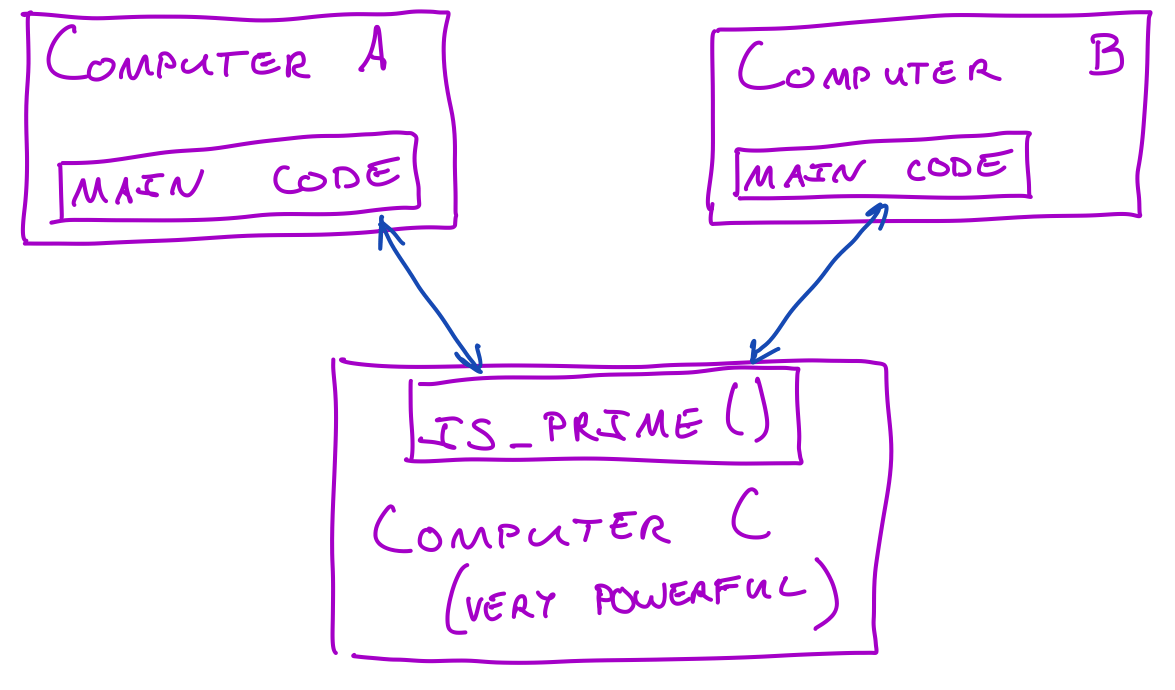 COMPUTER A
MAIN CODE
COMPUTER B
MAIN CODE
IS_PRIME()
COMPUTER C
(VERY POWERFUL)